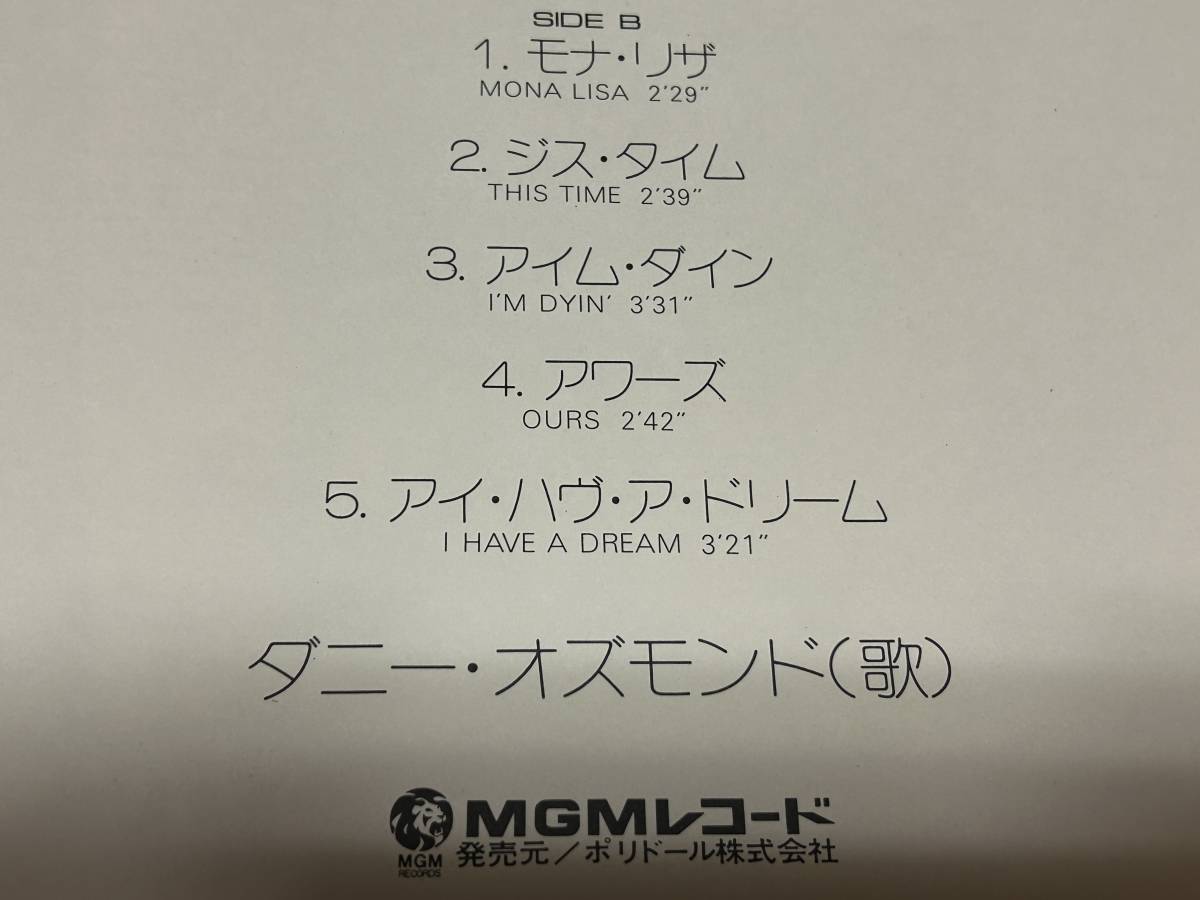 SIDE B
1. モナ・リザ
MONA LISA 2'29"
2. ジス・タイム
THIS TIME 2'39"
3. アイム・ダイン
I'M DYIN' 3'31"
4. アワーズ
OURS 2'42"
5. アイ・ハヴ・ア・ドリーム
I HAVE A DREAM 3'21"
ダニー・オズモンド(歌)
MGMレコード
MGM
RECORDS
発売元/ポリドール株式会社